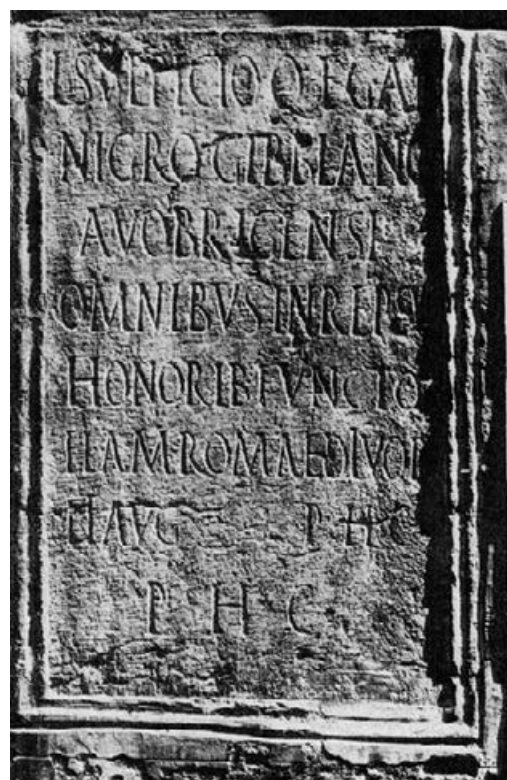 L SVLPICIO Q F GAL
NIGRO GIBBIANO
AVOBRIGENSI
OMNIBVS IN RE P SV
HONORIB FVNCTO
FLAM ROMAE DIVOR
ET AVG P H C
P H C